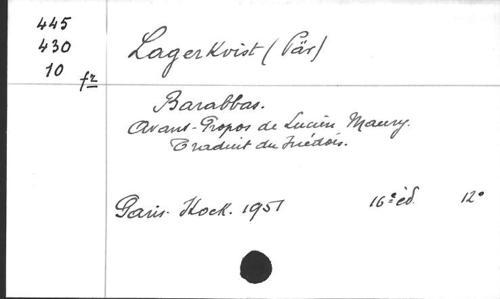 445
430
10 fr
Lagerkvist (Pär)
Barabbas.
Avant-Propos de Lucien Maury.
Traduit du Suédois.
Paris. Stock. 1951 16e éd. 12°